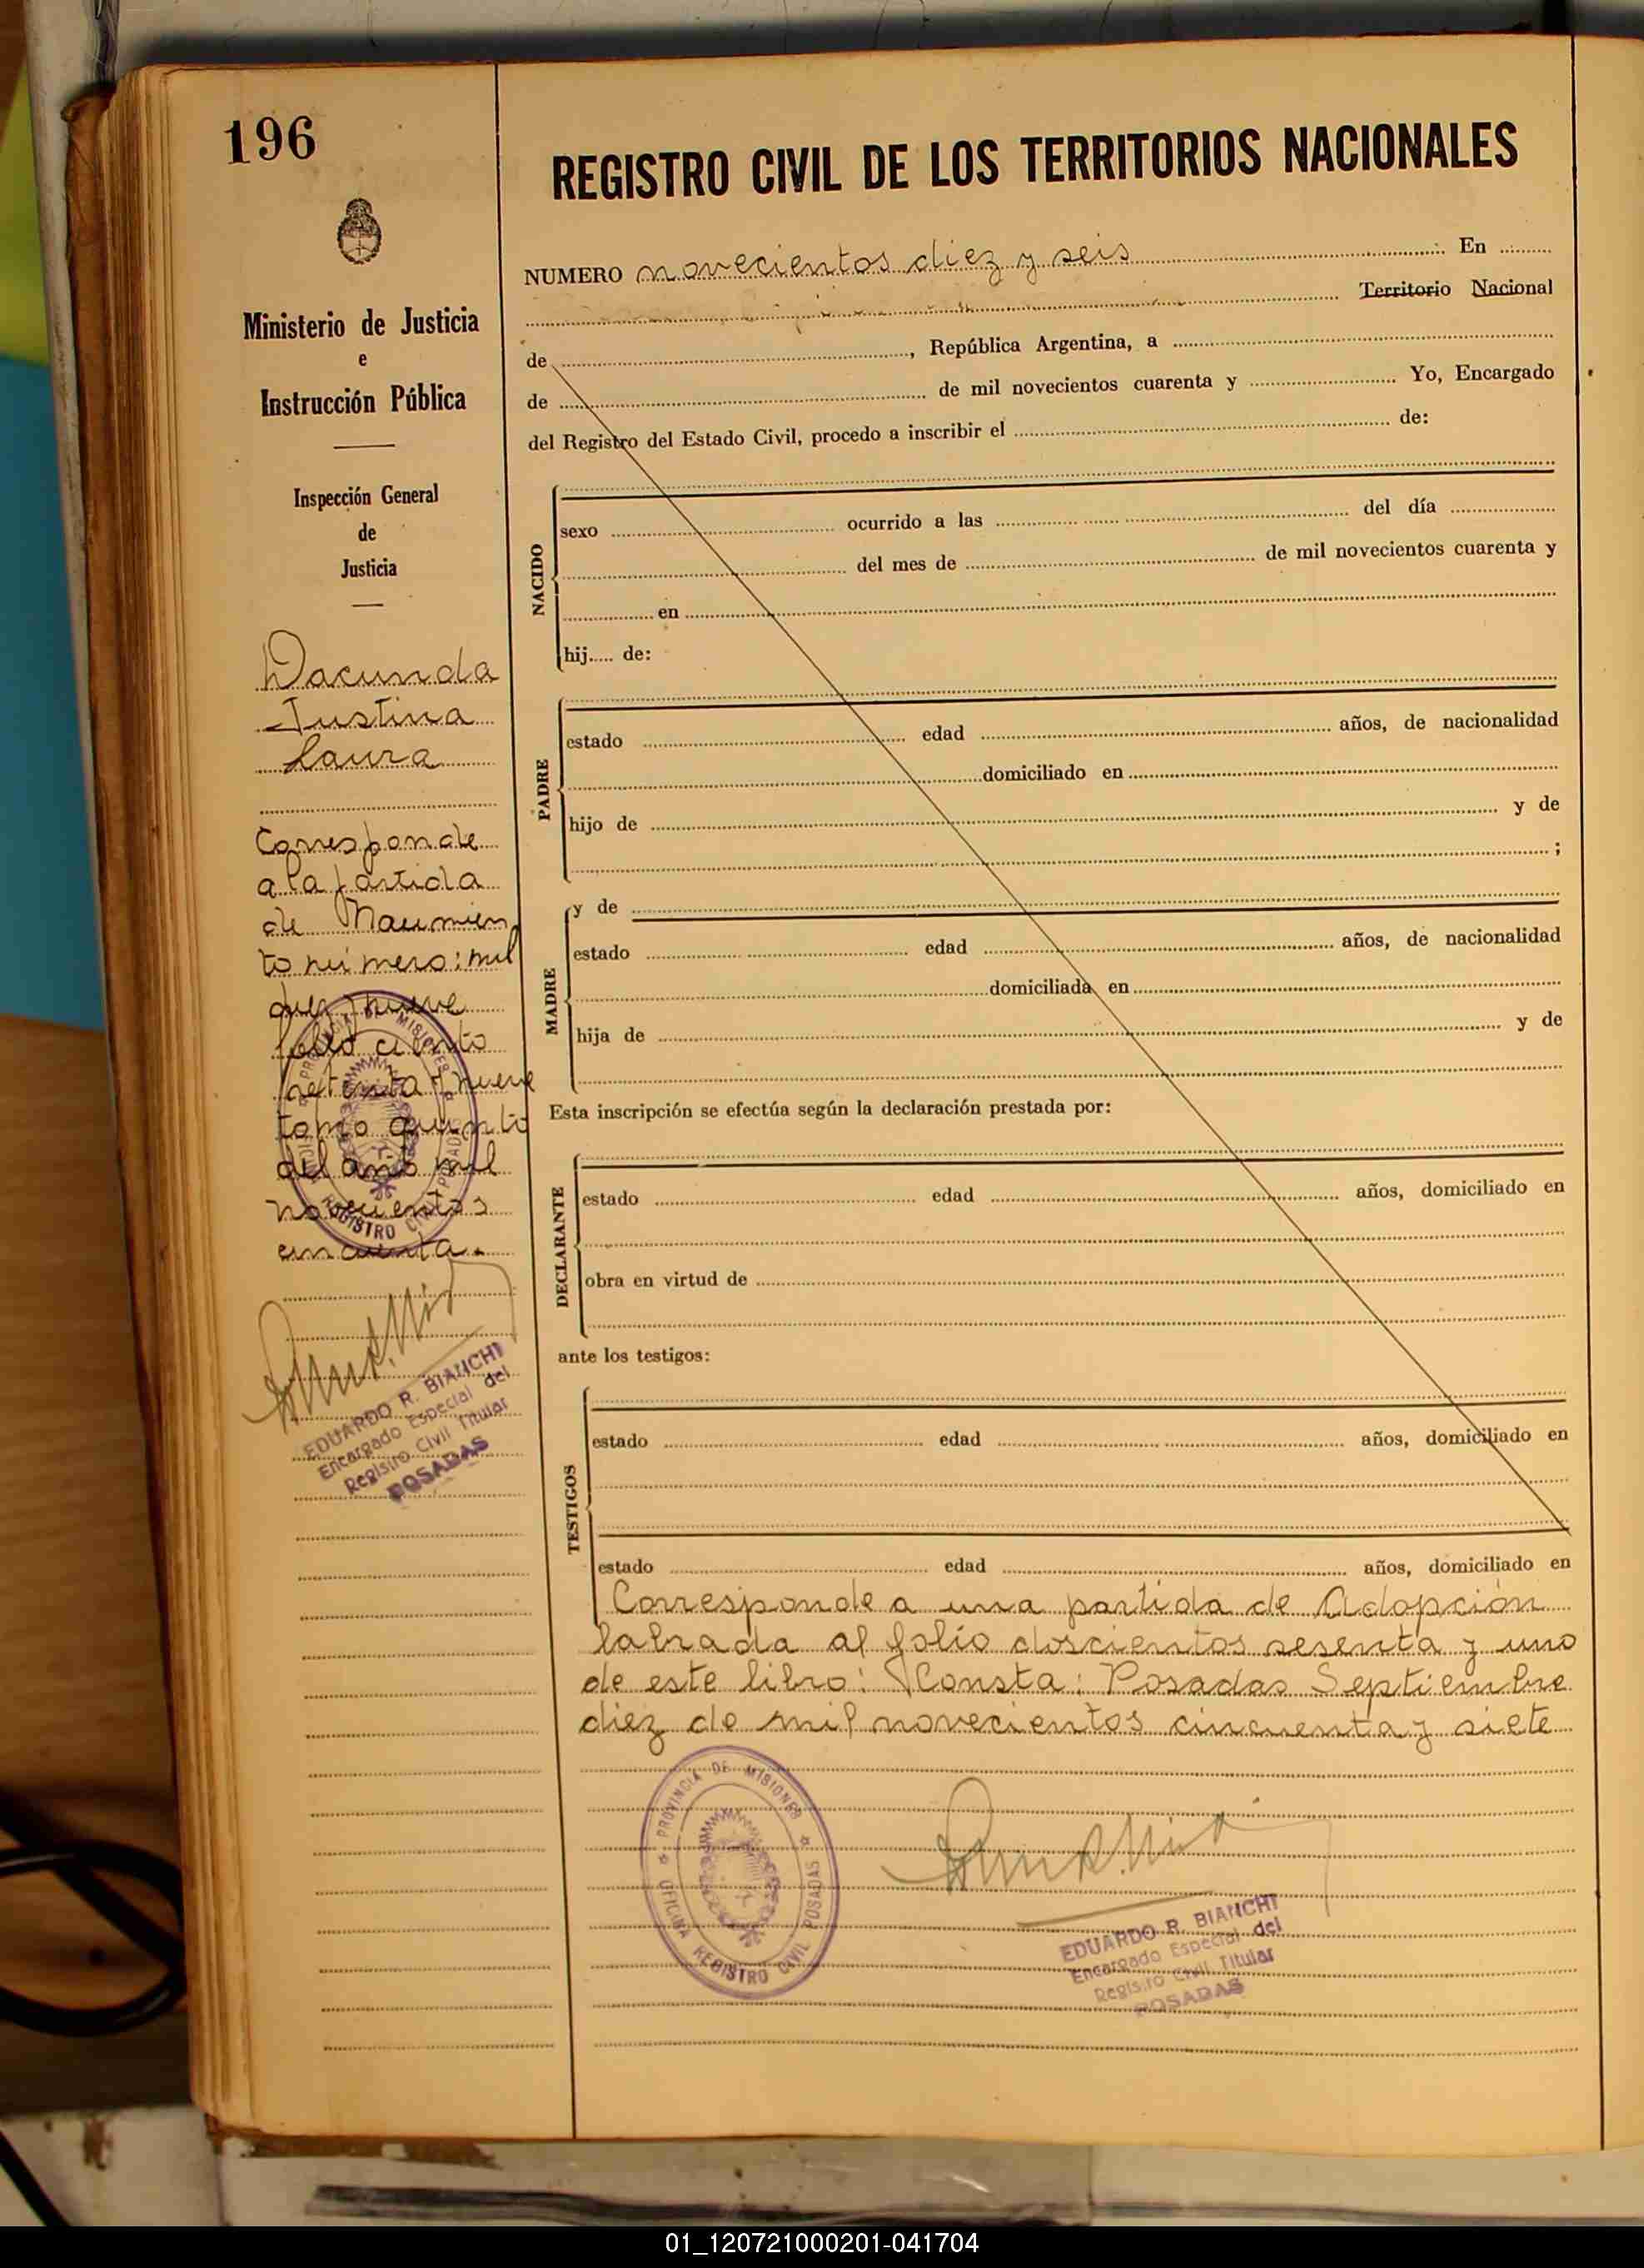 196
Ministerio de Justicia
e
Instrucción Pública
Inspección General
de
Justicia
Dacunda
Justina
Laura
Corresponde
a la partida
de Nacimien
to número: mil
diez y nueve
folio ciento
setenta y nueve
tomo quinto
del año mil
novecientos
cincuenta.
PROVINCIA DE MISIONES
OFICINA REGISTRO CIVIL POSADAS
EDUARDO R. BIANCHI
Encargado Especial del
Registro Civil Titular
POSADAS
REGISTRO CIVIL DE LOS TERRITORIOS NACIONALES
NUMERO novecientos diez y seis En
Territorio Nacional
de , República Argentina, a
de de mil novecientos cuarenta y Yo, Encargado
del Registro del Estado Civil, procedo a inscribir el de:
NACIDO
sexo ocurrido a las del día
del mes de de mil novecientos cuarenta y
en
hij de:
PADRE
estado edad años, de nacionalidad
domiciliado en
hijo de y de
;
MADRE
y de
estado edad años, de nacionalidad
domiciliada en
hija de y de
Esta inscripción se efectúa según la declaración prestada por:
DECLARANTE
estado edad años, domiciliado en
obra en virtud de
ante los testigos:
TESTIGOS
estado edad años, domiciliado en
estado edad años, domiciliado en
Corresponde a una partida de Adopción
labrada al folio doscientos sesenta y uno
de este libro: Consta: Posadas Septiembre
diez de mil novecientos cincuenta y siete
PROVINCIA DE MISIONES
OFICINA REGISTRO CIVIL POSADAS
EDUARDO R. BIANCHI
Encargado Especial del
Registro Civil Titular
POSADAS
01_120721000201-041704